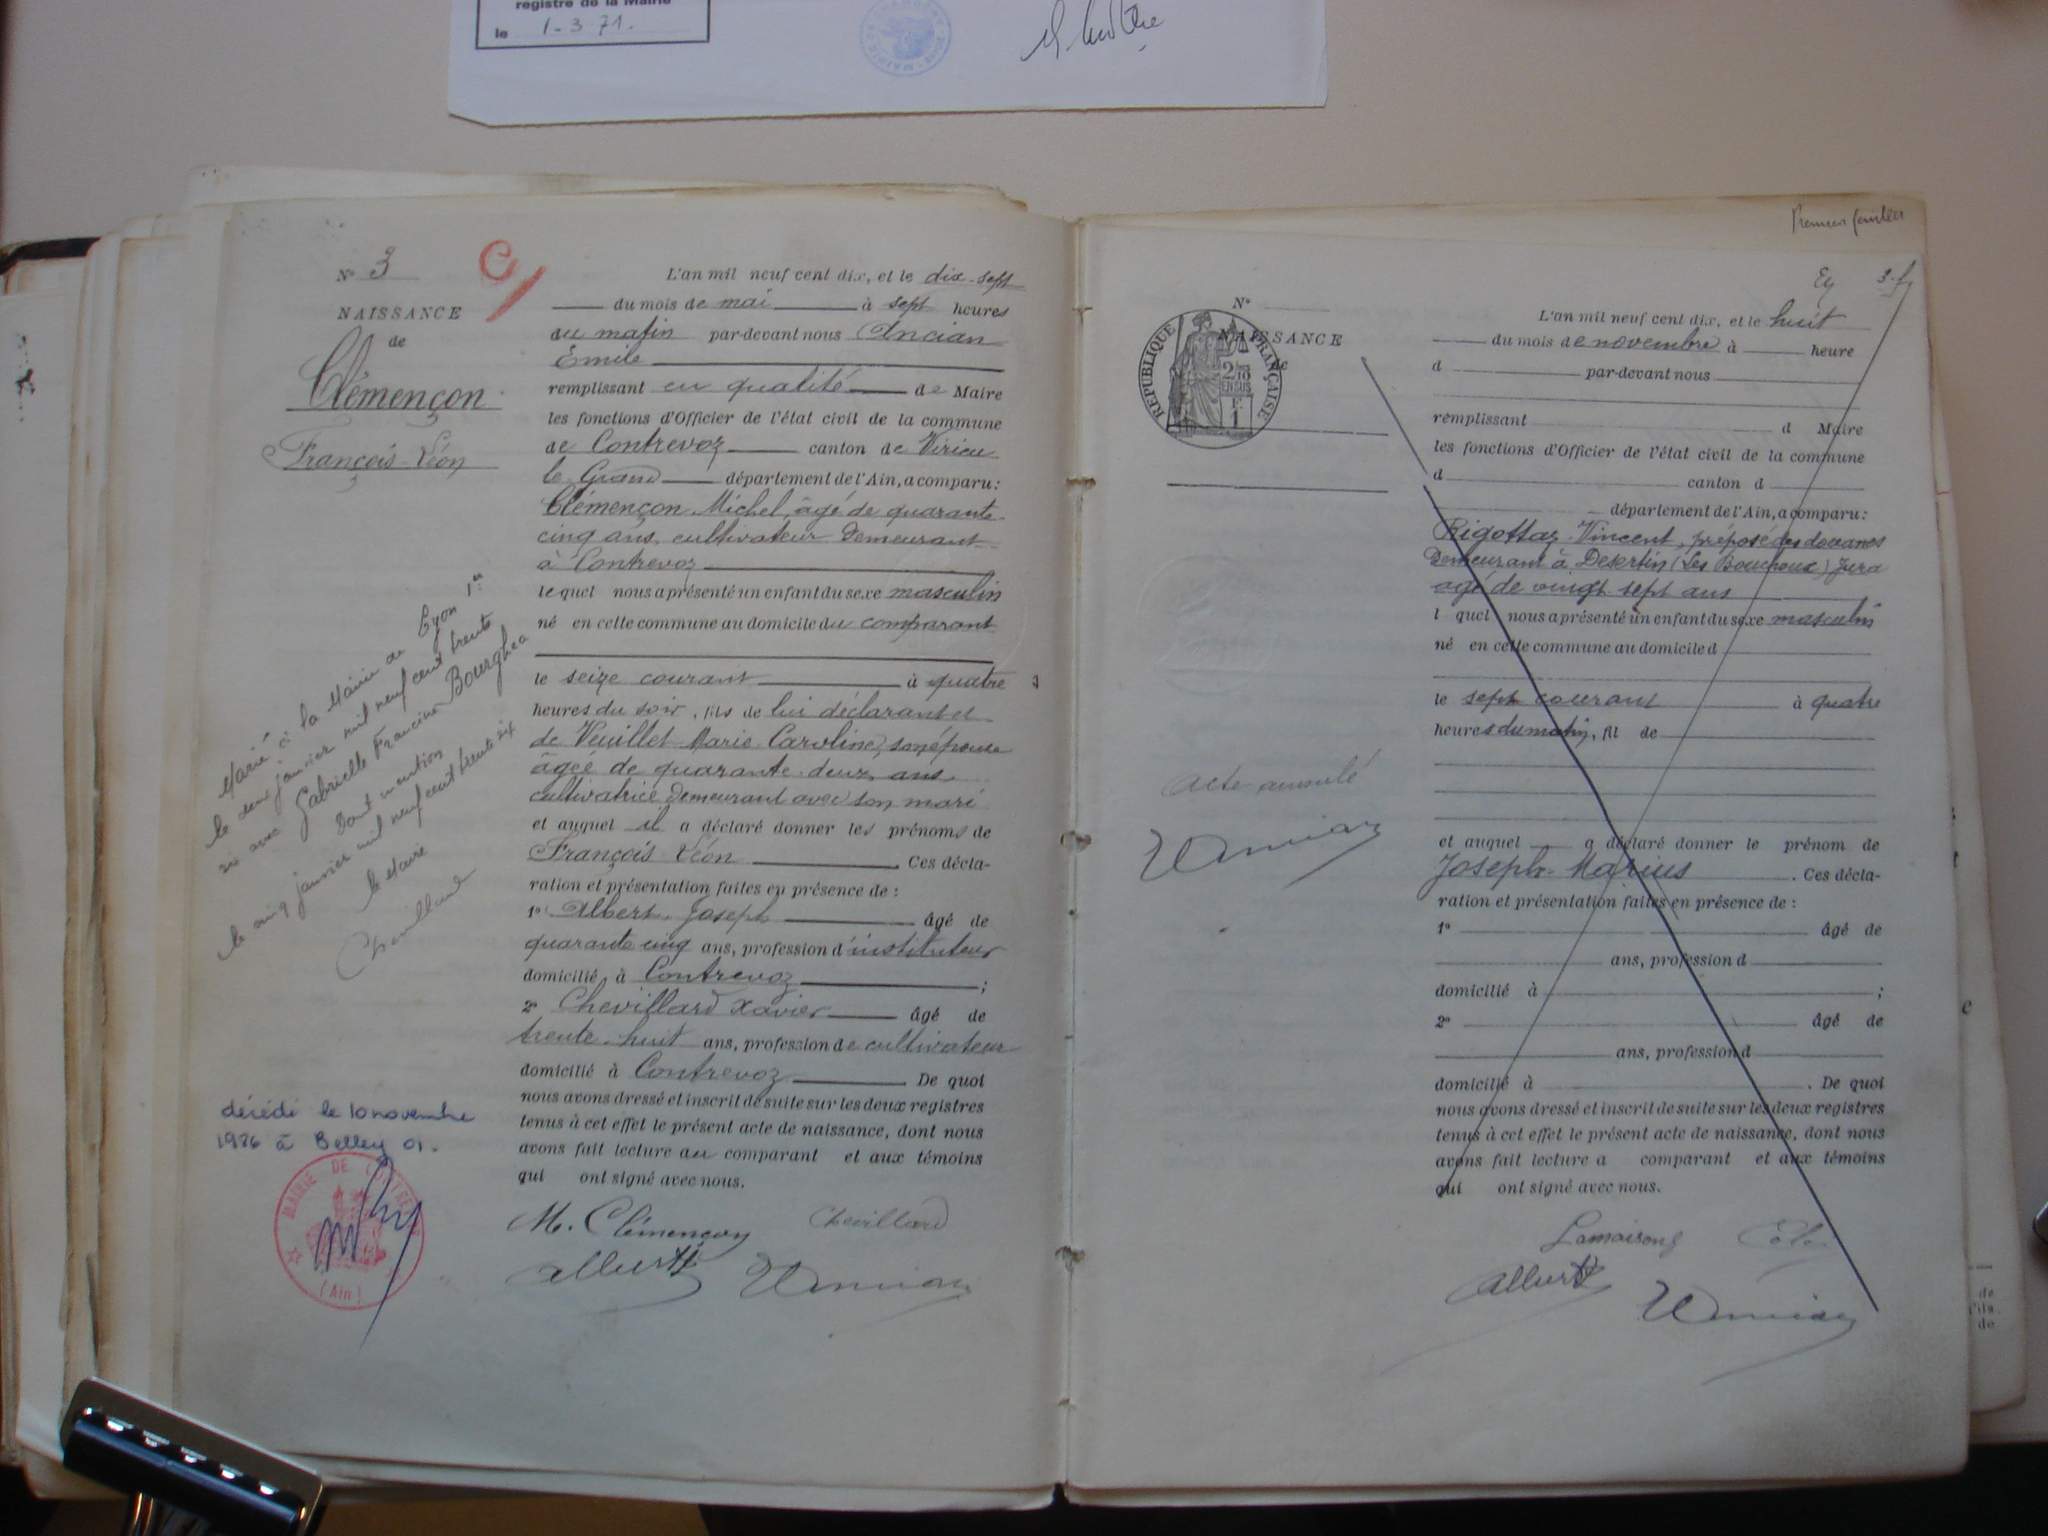 registre de la Mairie
le 1-3 71.
N° 3
NAISSANCE
de
Clémençon
François-Léon
L'an mil neuf cent dix, et le dix-sept
du mois de mai à sept heures
du matin par-devant nous Ancian
Emile
remplissant en qualité de Maire
les fonctions d'Officier de l'état civil de la commune
de Contrevoz canton de Virieu
le Grand département de l'Ain, a comparu:
Clémençon Michel, âgé de quarante
cinq ans, cultivateur demeurant
à Contrevoz
lequel nous a présenté un enfant du sexe masculin
né en cette commune au domicile du comparant
le seize courant à quatre
heures du soir, fils de lui déclarant et
de Veuillet Marie Caroline, son épouse
âgée de quarante-deux ans
cultivatrice demeurant avec son mari
et auquel il a déclaré donner les prénoms de
François Léon. Ces décla-
ration et présentation faites en présence de :
1° Albert Joseph âgé de
quarante cinq ans, profession d'instituteur
domicilié à Contrevoz ;
2° Chevillard Xavier âgé de
trente-huit ans, profession de cultivateur
domicilié à Contrevoz. De quoi
nous avons dressé et inscrit de suite sur les deux registres
tenus à cet effet le présent acte de naissance, dont nous
avons fait lecture au comparant et aux témoins
qui ont signé avec nous.
M. Clémençon Chevillard
Albert
Marié à la Mairie de Lyon 1er
le deux janvier mil neuf cent trente
six avec Gabrielle Francine
Dont mention
le cinq janvier mil neuf cent trente six
le Maire
Chevillard
décédé le 10 novembre
1986 à Belley 01.
MAIRIE DE
(Ain)
3
N°
NAISSANCE
de
RÉPUBLIQUE FRANÇAISE
2/10
EN SUS
F. 1
L'an mil neuf cent dix, et le huit
du mois de novembre à heure
d par-devant nous
remplissant d Maire
les fonctions d'Officier de l'état civil de la commune
d canton d
département de l'Ain, a comparu:
Rigottaz Vincent, préposé des douanes
demeurant à Desertin (Les Bouchoux) Jura
agé de vingt-sept ans
l quel nous a présenté un enfant du sexe masculin
né en cette commune au domicile d
le sept courant à quatre
heures du matin, fil de
et auquel a déclaré donner le prénom de
Joseph-Marius. Ces décla-
ration et présentation faites en présence de :
1° âgé de
ans, profession d
domicilié à ;
2° âgé de
ans, profession d
domicilié à . De quoi
nous avons dressé et inscrit de suite sur les deux registres
tenus à cet effet le présent acte de naissance, dont nous
avons fait lecture a comparant et aux témoins
qui ont signé avec nous.
Albert
acte annulé